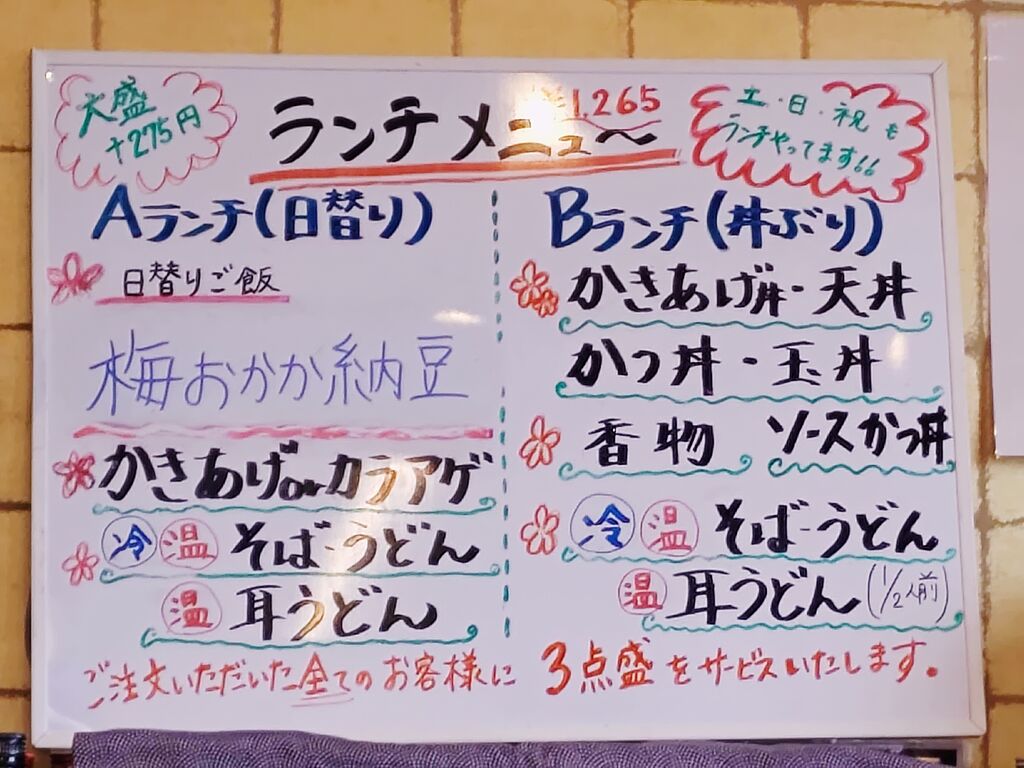 大盛
+275円
ランチメニュ〜
¥1,265
土・日・祝も
ランチやってます!!
Aランチ(日替り)
日替りご飯
梅おかか納豆
かきあげorカラアゲ
冷 温 そば・うどん
温 耳うどん
Bランチ(丼ぶり)
かきあげ丼・天丼
かつ丼・玉丼
香物 ソースかつ丼
冷 温 そば・うどん
温 耳うどん(1/2人前)
ご注文いただいた全てのお客様に 3点盛をサービスいたします。